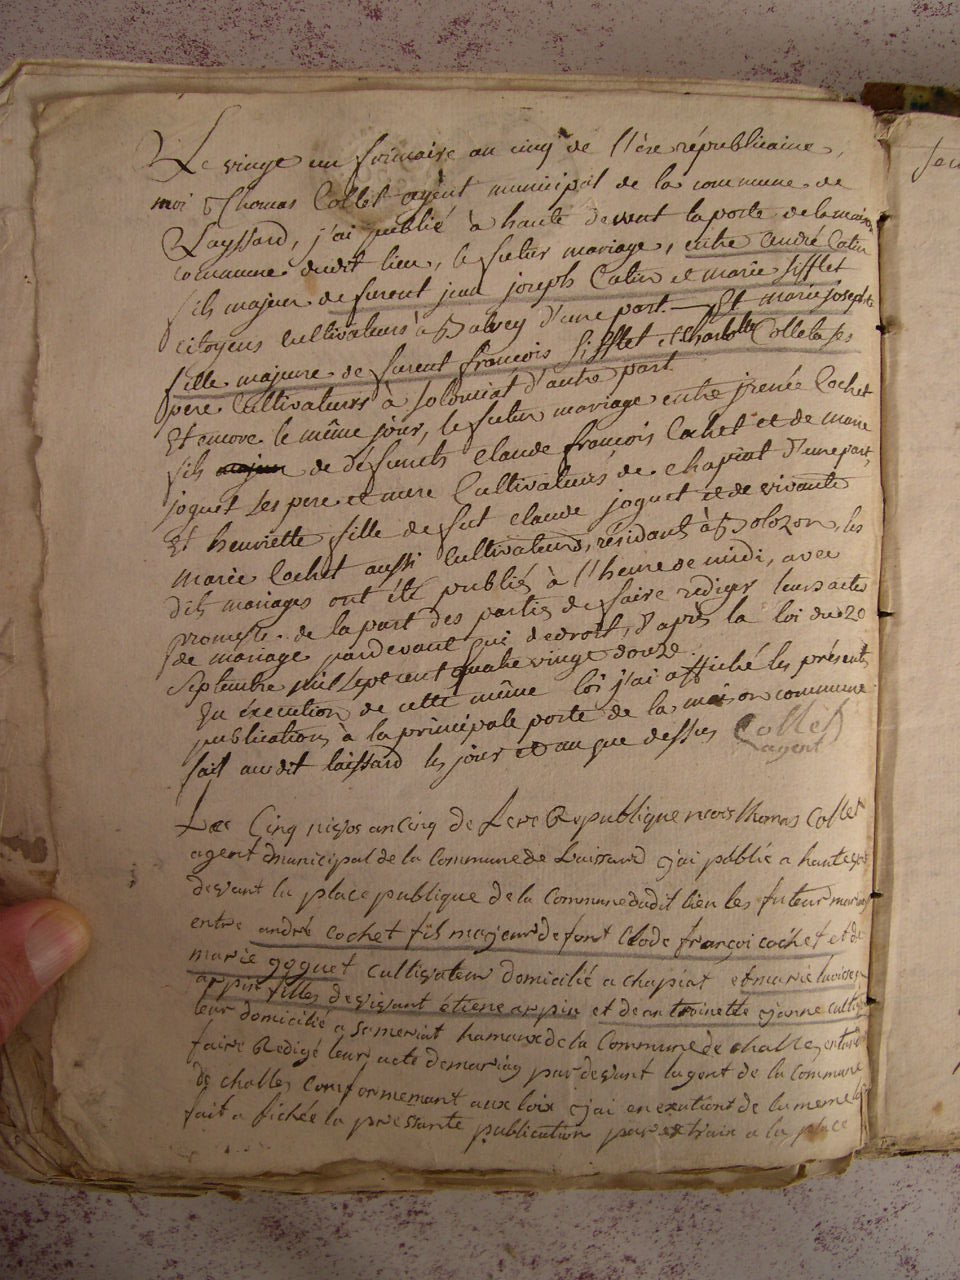 Le vingt un frimaire an cinq de l'ière républicaine,
moi Thomas Collet agent municipal de la commune de
Layssard, j'ai publié à haute devant la porte de la maison
commune dudit lieu, le futur mariage, entre André Catin
fils majeur de furent jean joseph Catin et marie sifflet
citoyens cultivateurs à Balvey d'une part. Et marie josephte
fille majeure de furent francois sifflet et Charlotte Collet ses
pere cultivateurs à solomiat d'autre part
Et encore le même jour, le futur mariage entre jrenée Cochet
fils de défunts claude françois Cochet et de marie
joguet ses pere et mere Cultivateurs de chapiat d'une part,
Et henriette fille de fut claude joguet et de vivante
marie Cochet aussi Cultivateurs, résidants à Bolozon, les
dits mariages ont été publiés à l'heure de midi, avec
promesse de la part des parties de faire rediger leurs actes
de mariage pardevant qui de droit, d'après la loi du 20
septembre mil sept cent quatre vingt douze.
En éxecution de cette même loi j'ai affiché les présents
publications à la principale porte de la maison commune
fait audit laissard les jour et an que dessus Collet
agent
Le Cinq nivos an Cinq de Lere Republique mois thomas Collet
agent municipal de la Commune de Laissard j'ai publié a haute
devant la place publique de la Commune dudit lieu les futeur mariag
entre andré cochet fils majeur de font Clode françoi cochet et de
marie goguet cultivateur domicilié a chapiat et marie
arpin filles de vivant étiene arpin et de antoinette janne cultiv
teur domicilié a someriat hamaux de la Commune de challes
faire Redigé leur acte de mariag par devant lagent de la Commune
de challes Conformemant aux loix j'ai en exutiont de la meme loi
fait a fichée la pressante publication par extrait a la place